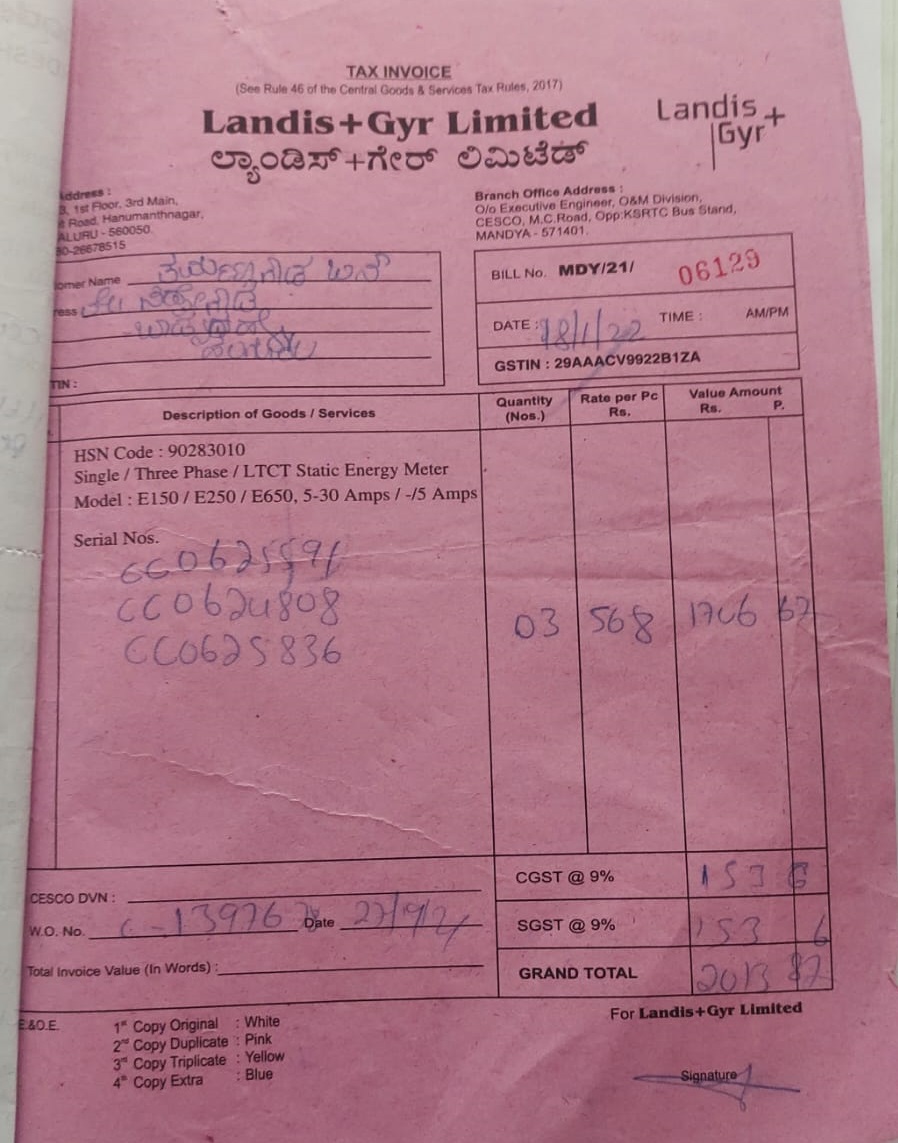 TAX INVOICE
(See Rule 46 of the Central Goods & Services Tax Rules, 2017)
Landis+Gyr Limited
ಲ್ಯಾಂಡಿಸ್+ಗೇರ್ ಲಿಮಿಟೆಡ್
Landis
Gyr+
ddress :
3, 1st Floor, 3rd Main,
t Road, Hanumanthnagar,
ALURU - 560050.
80-26678515
Branch Office Address :
O/o Executive Engineer, O&M Division,
CESCO, M.C.Road, Opp:KSRTC Bus Stand,
MANDYA - 571401.
omer Name
ress
TIN :
BILL No. MDY/21/ 06129
DATE : 18/1/22 TIME : AM/PM
GSTIN : 29AAACV9922B1ZA
Description of Goods / Services
Quantity (Nos.)
Rate per Pc Rs.
Value Amount Rs. P.
HSN Code : 90283010
Single / Three Phase / LTCT Static Energy Meter
Model : E150 / E250 / E650, 5-30 Amps / -/5 Amps
Serial Nos.
CC0624808 03 568 1706 62
CC0625836
CGST @ 9% 153 6
SGST @ 9% 153 6
GRAND TOTAL 2013 82
CESCO DVN :
W.O. No. Date
Total Invoice Value (In Words) :
E&O.E.
1st Copy Original : White
2nd Copy Duplicate : Pink
3rd Copy Triplicate : Yellow
4th Copy Extra : Blue
For Landis+Gyr Limited
Signature